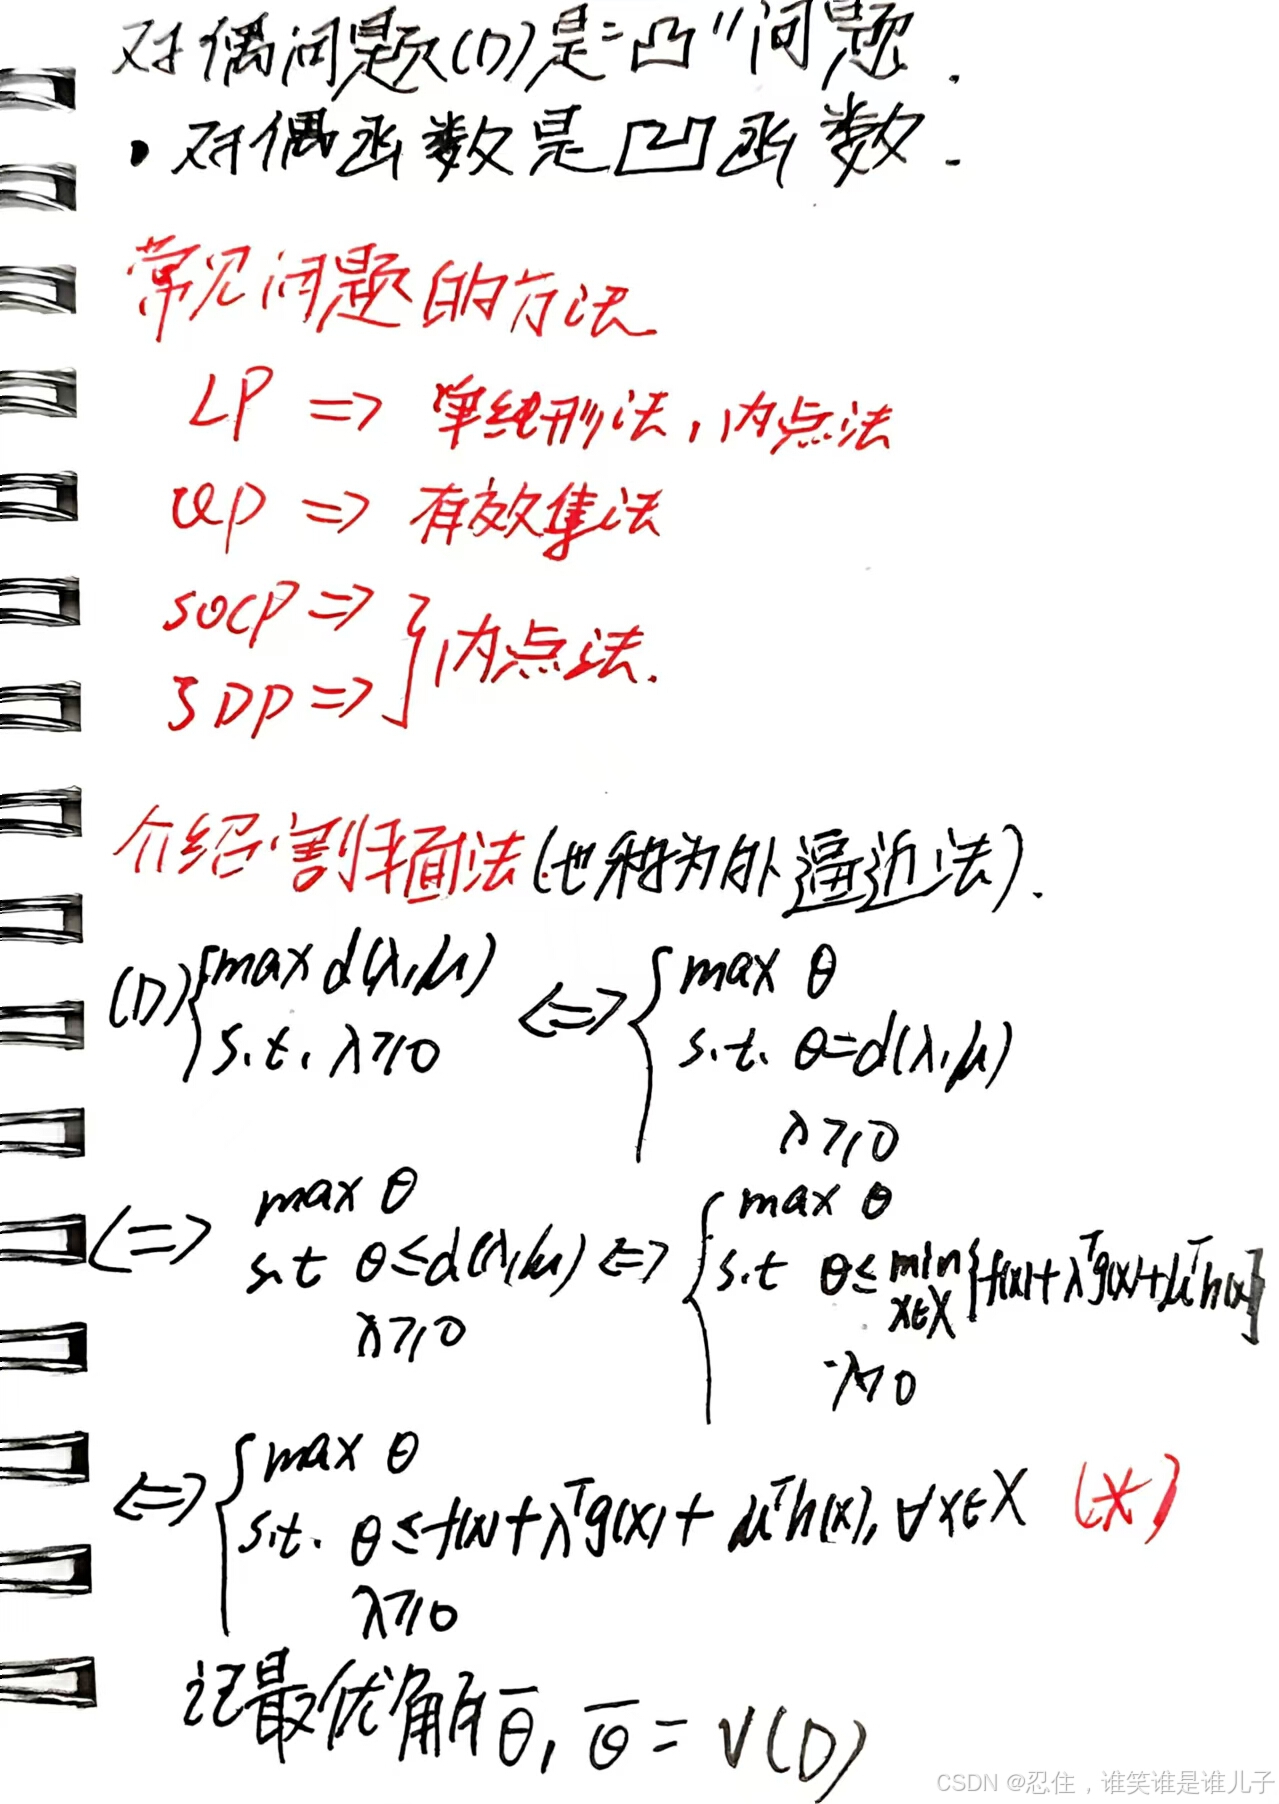 对偶问题(D)是"凸"问题.
• 对偶函数是凹函数.
常见问题的方法
LP => 单纯形法,内点法
QP => 有效集法
SOCP =>
SDP => } 内点法.
介绍割平面法(也称为外逼近法).
(D) { max d(λ,μ) <=> { max θ
s.t. λ≥0 s.t. θ=d(λ,μ)
λ≥0
<=> max θ <=> { max θ
s.t θ≤d(λ,μ) s.t θ≤min_{x∈X}{f(x)+λᵀg(x)+μᵀh(x)}
λ≥0 λ≥0
<=> { max θ
s.t. θ≤f(x)+λᵀg(x)+μᵀh(x), ∀x∈X (*)
λ≥0
记最优解θ̄, θ̄=v(D)
CSDN @忍住，谁笑谁是谁儿子